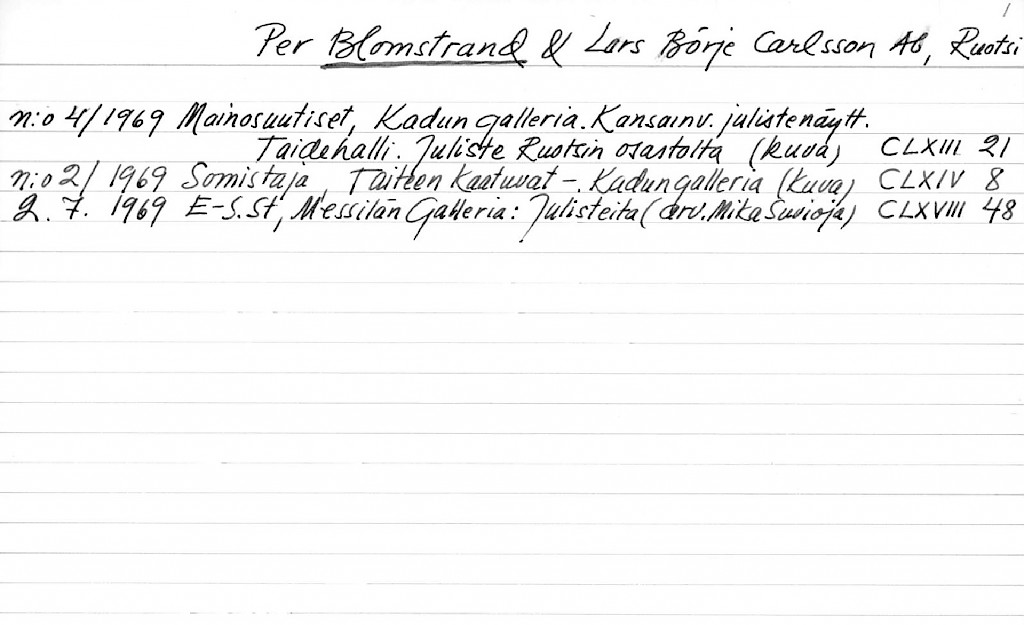 1
Per Blomstrand & Lars Börje Carlsson Ab, Ruotsi
n:o 4/1969 Mainosuutiset, Kadun galleria. Kansainv. julistenäytt.
Taidehalli. Juliste Ruotsin osastolta (kuva) CLXIII 21
n:o 2/1969 Somistaja, Taiteen kaatuvat –. Kadungalleria (kuva) CLXIV 8
2. 7. 1969 E-S.St, Messilän Galleria: Julisteita (arv. Mika Suvioja) CLXVIII 48